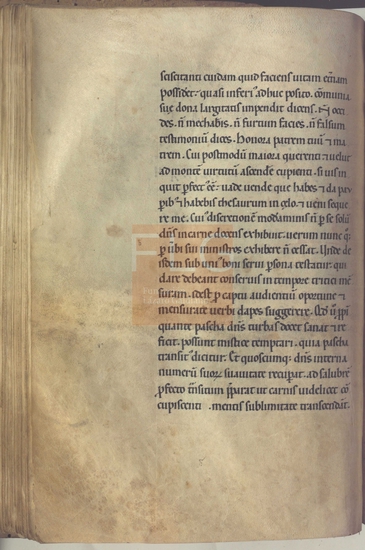 sciscitanti cuidam quid faciens uitam et̄nam
possidet. quasi inferi adhuc posito. cōmunia
suę dona largitatis inpendit dicens. N̄ occi
des. ñ mechabis. ñ furtum facies. ñ falsum
testimoniū dices. Honora patrem tuū ⁊ ma
trem. Cui postmodū maiora querenti ⁊ uelut
ad montē uirtutū ascendē cupienti. si uis in
quit pfect' eē. uade uende que habes ⁊ da pau
ꝑib; ⁊ habebis thesaurum in cęlo. ⁊ ueni seque
re me. Cui' discretionē modaminis ñ ꝑ se solū
dn̄s in carne docens exhibuit. uerum nunc q;
ꝑ ubi sui ministros exhibere ñ cessat. Unde de
isdem sub uni' boni serui ꝑsona testatur. qui
dare debeant conseruis in tempore tritici mē
suram. idest ꝓ captu audientiū oportune ⁊
mensurate uerbi dapes suggerere. Sed ⁊
quante pascha dn̄s turbas docet sanat ⁊ re
ficit. possunt mistice temperari. quia pascha
transit' dicitur. Et quoscumq; dn̄s interna
numerū suoꝝ suauitate recuperat. ad salubrē
ꝓfecto t̄nsitum p̄parat ut carnis uidelicet cō
cupiscenti mentis sublimitate transcendant.